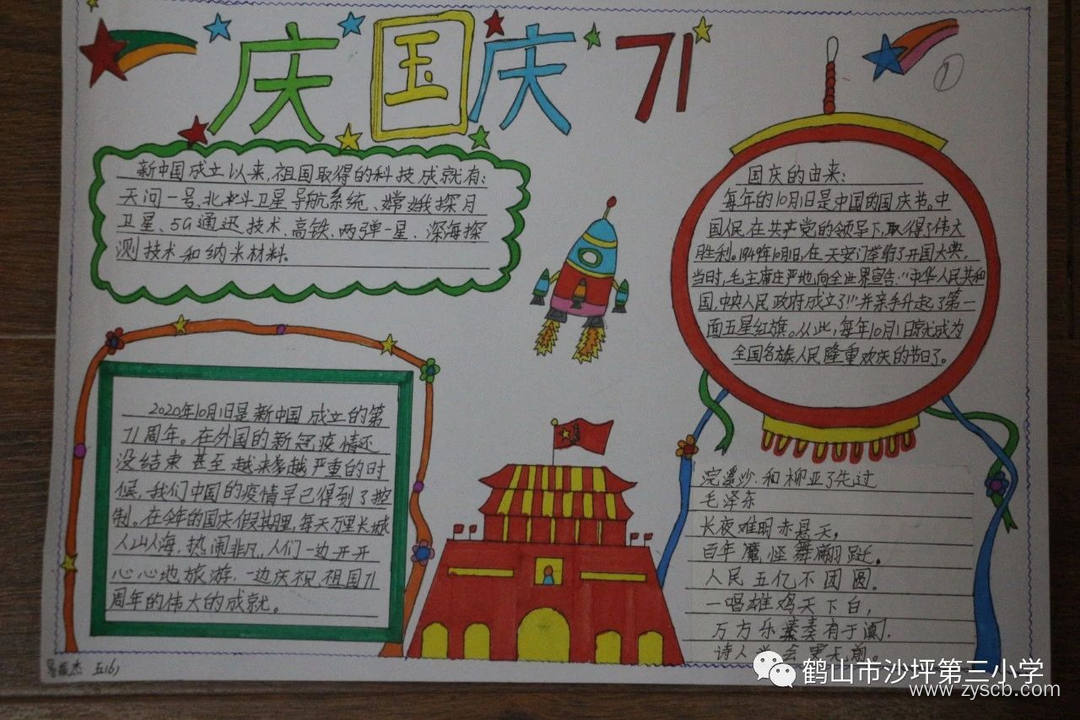 庆国庆71
①
新中国成立以来,祖国取得的科技成就有:
天问一号、北斗卫星导航系统、嫦娥探月
卫星、5G通迅技术、高铁、两弹一星、深海探
测技术和纳米材料.
国庆的由来:
每年的10月1日是中国的国庆节。中
国人民在共产党的领导下,取得了伟大
胜利。1949年10月1日,在天安门举行了开国大典,
当时,毛主席庄严地向全世界宣告:“中华人民共和
国,中央人民政府成立了!”并亲手升起了第一
面五星红旗。从此,每年10月1日就成为
全国各族人民隆重欢庆的节日了。
2020年10月1日是新中国成立的第
71周年。在外国的新冠疫情还
没结束甚至越来越严重的时
候,我们中国的疫情早已得到了控
制。在今年的国庆假期里,每天万里长城
人山人海,热闹非凡,人们一边开开
心心地旅游,一边庆祝祖国71
周年的伟大的成就。
浣溪沙·和柳亚子先过
毛泽东
长夜难明赤县天,
百年魔怪舞翩跹.
人民五亿不团圆.
一唱雄鸡天下白,
万方乐奏有于阗.
诗人
杰 五(6)
鹤山市沙坪第三小学
www.zyscb.com